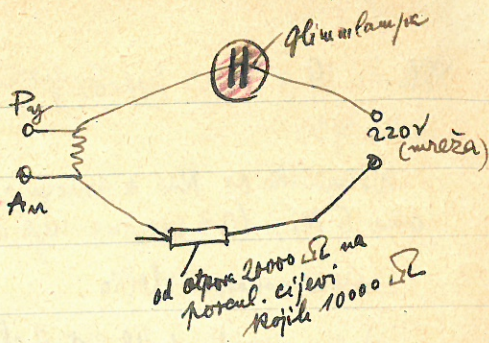 glimmlampa
Py
220V
(mreža)
An
od otpora 20000 Ω na
porcul. cijevi
kojih 10000 Ω